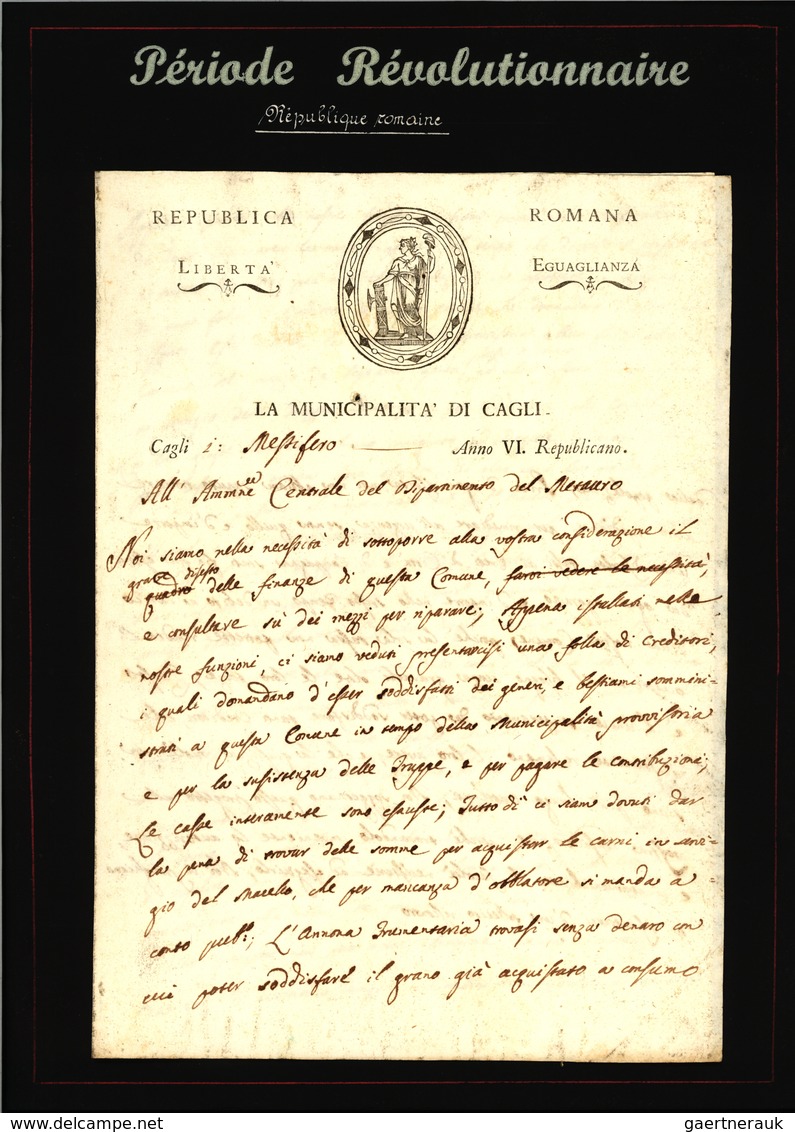 Période Révolutionnaire
République romaine
REPUBLICA ROMANA
LIBERTA' EGUAGLIANZA
LA MUNICIPALITA' DI CAGLI.
Cagli 1: Messifero Anno VI. Republicano.
All' Ammne Centrale del Dipartimento del Metauro
Noi siamo nella necessità di sottoporre alla vostra considerazione il
grave disesto
quadro delle finanze di questa Comune, farvi vedere la necessità,
e consultare sù dei mezzi per riparare; Appena istallati nelle
nostre funzioni, ci siamo veduti presentarcisi una folla di Creditori,
i quali domandano d'esser soddisfatti dei generi, e bestiami sommini-
strati a questa Comune in tempo della Municipalità provvisoria
e per la susistenza delle Truppe, e per pagare le contribuzioni;
Le casse interamente sono esauste; Tutto dì ci siam dovuti dar
la pena di trovar delle somme per acquistar le carni in servi-
gio del Macello, che per mancanza d'obblatore si manda a
conto pubo.; L'Annona Frumentaria trovasi senza denaro con
cui poter soddisfare il grano già acquistato a consumo
delcampe.net gaertnerauk